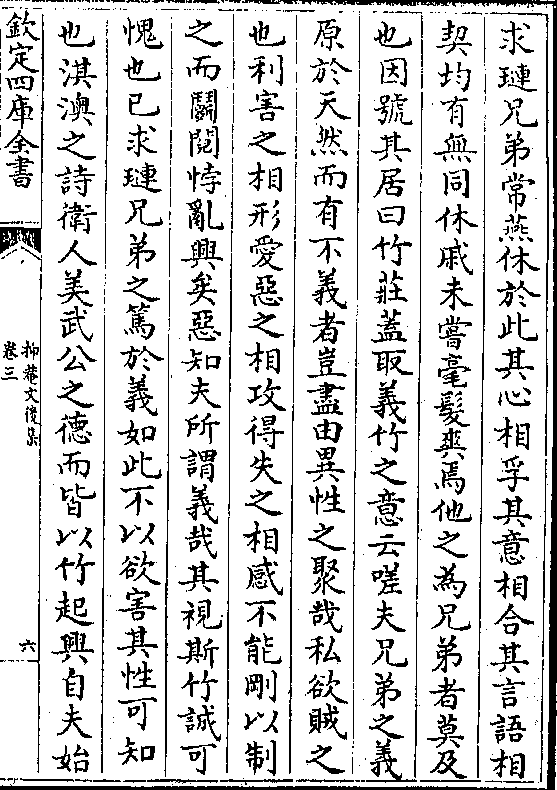 求璉兄弟常燕休於此其心相孚其意相合其言語相
契均有無同休戚未嘗毫髮爽焉他之為兄弟者莫及
也因號其居曰竹莊蓋取義竹之意云嗟夫兄弟之義
原於天然而有不義者豈盡由異性之聚哉私欲賊之
也利害之相形愛惡之相攻得失之相感不能剛以制
之而鬬鬩悖亂興矣惡知夫所謂義哉其視斯竹誠可
愧也已求璉兄弟之篤於義如此不以欲害其性可知
也淇澳之詩衛人美武公之德而皆以竹起興自夫始
欽定四庫全書
抑菴文後集
卷三
六